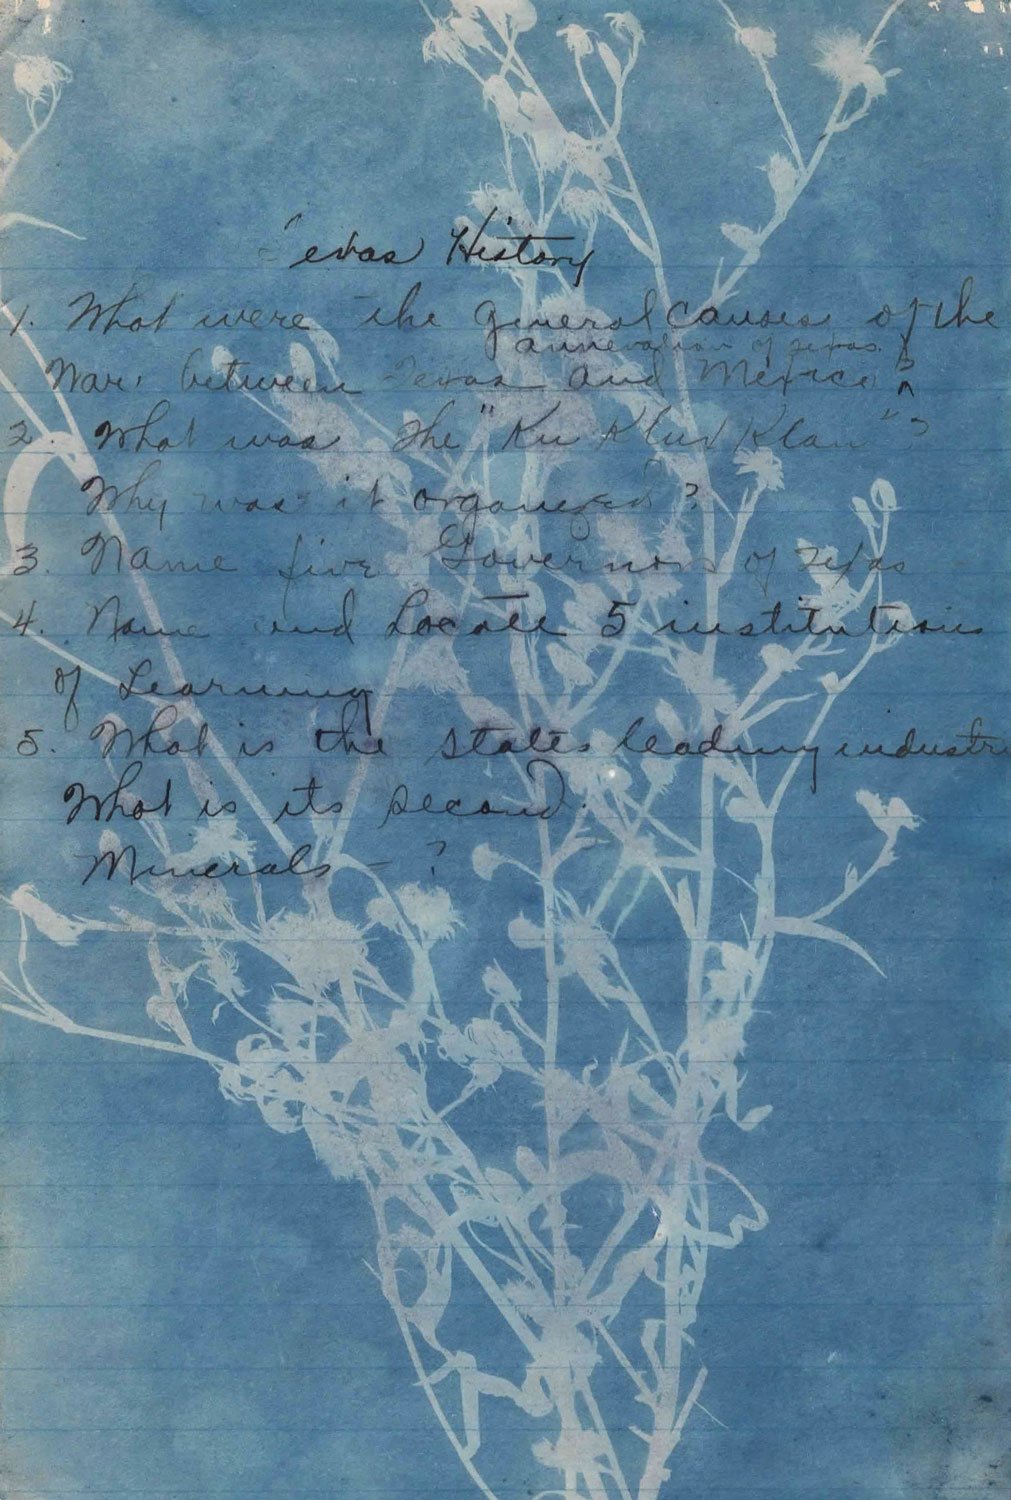 Texas History
1. What were the general causes of the
annexation of Texas.
War between Texas and Mexico?
2. What was the "Ku Klux Klan"?
Why was it organized?
3. Name five Governors of Texas
4. Name and Locate 5 institutions
of Learning
5. What is the states leading industr
What is its second.
Minerals - ?